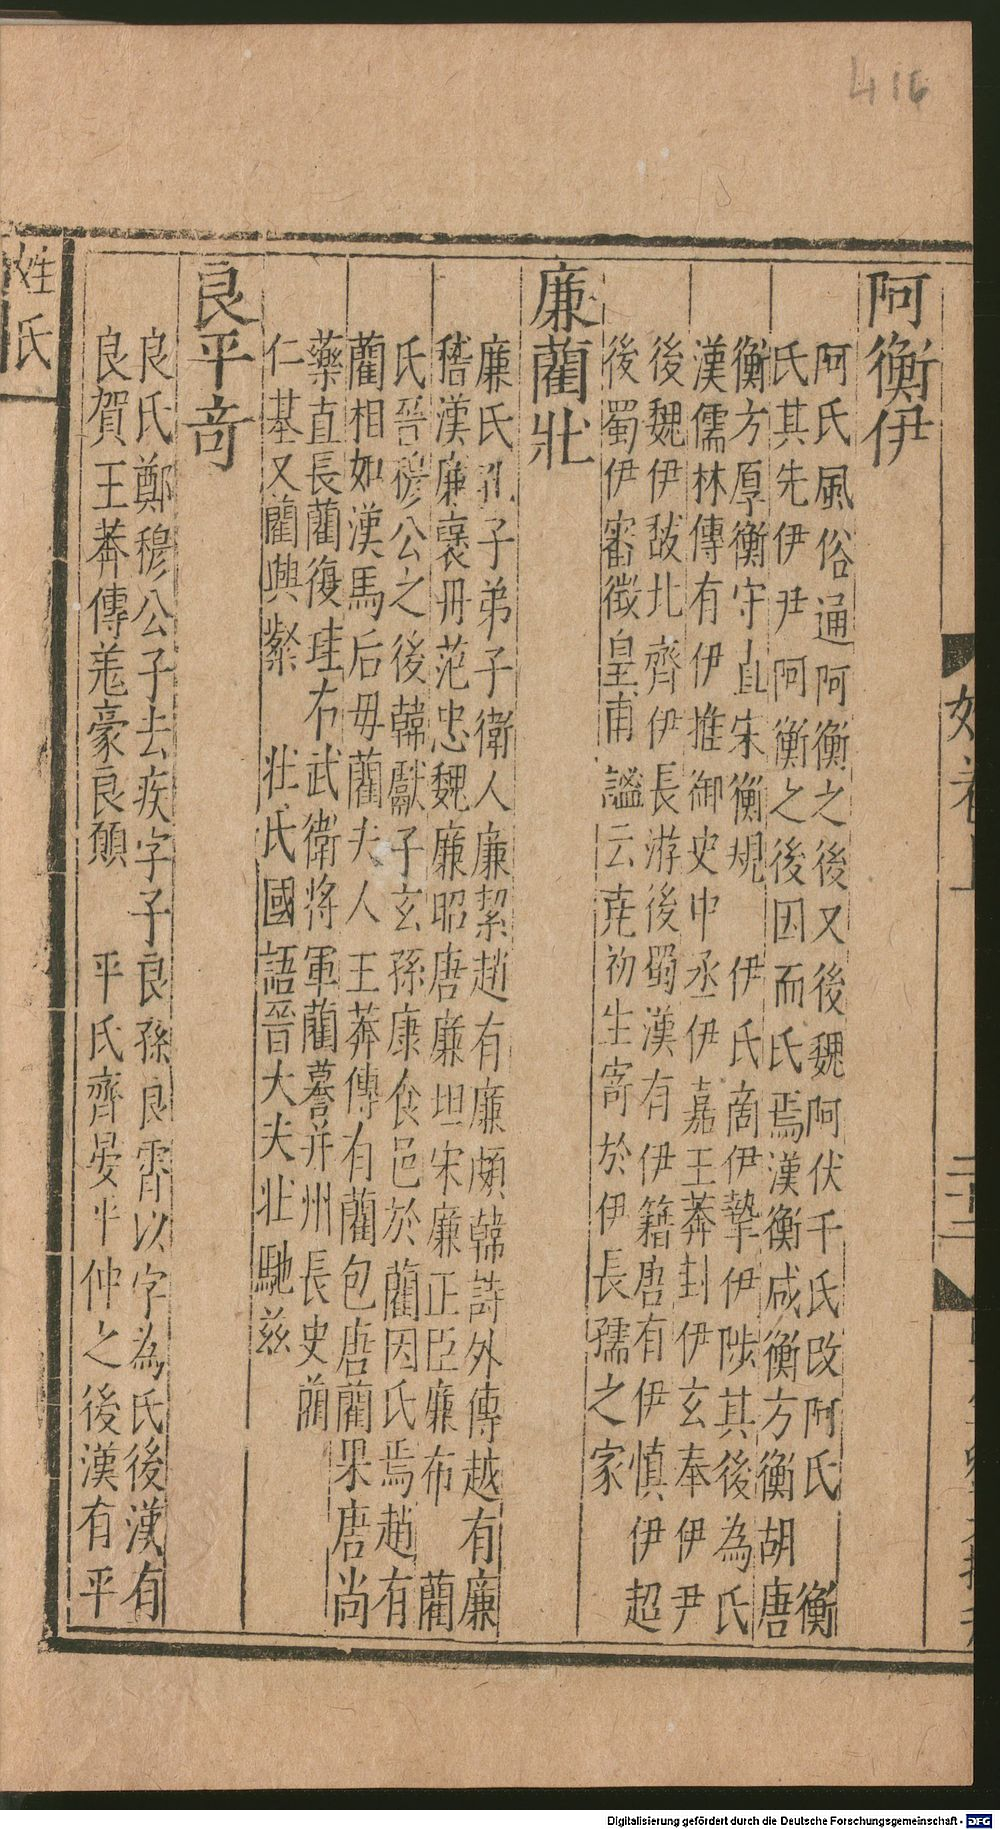 416
阿衡伊
阿氏風俗通阿衡之後又後魏阿伏千氏改阿氏　衡
氏其先伊尹阿衡之後因而氏焉漢衡咸衡方衡胡唐
衡方厚衡守直宋衡規　伊氏商伊摯伊陟其後為氏
漢儒林傳有伊推御史中丞伊嘉王莽封伊玄奉伊尹
後魏伊馛北齊伊長游後蜀漢有伊籍唐有伊慎伊超
後蜀伊審徵皇甫謐云堯初生寄於伊長孺之家
廉藺壯
廉氏孔子弟子衛人廉絜趙有廉頗韓詩外傳越有廉
稽漢廉襃丹范忠魏廉昭唐廉坦宋廉正臣廉布　藺
氏晉穆公之後韓獻子玄孫康食邑於藺因氏焉趙有
藺相如漢馬后毋藺夫人王莽傳有藺包唐藺果唐尚
藥直長藺復珪右武衛將軍藺謩并州長史藺
仁基又藺興縏　壯氏國語晉大夫壯馳茲
良平奇
良氏鄭穆公子去疾字子良孫良霄以字為氏後漢有
良賀王莽傳羗豪良願　平氏齊晏平仲之後漢有平
姓氏
二十二
Digitalisierung gefördert durch die Deutsche Forschungsgemeinschaft - DFG